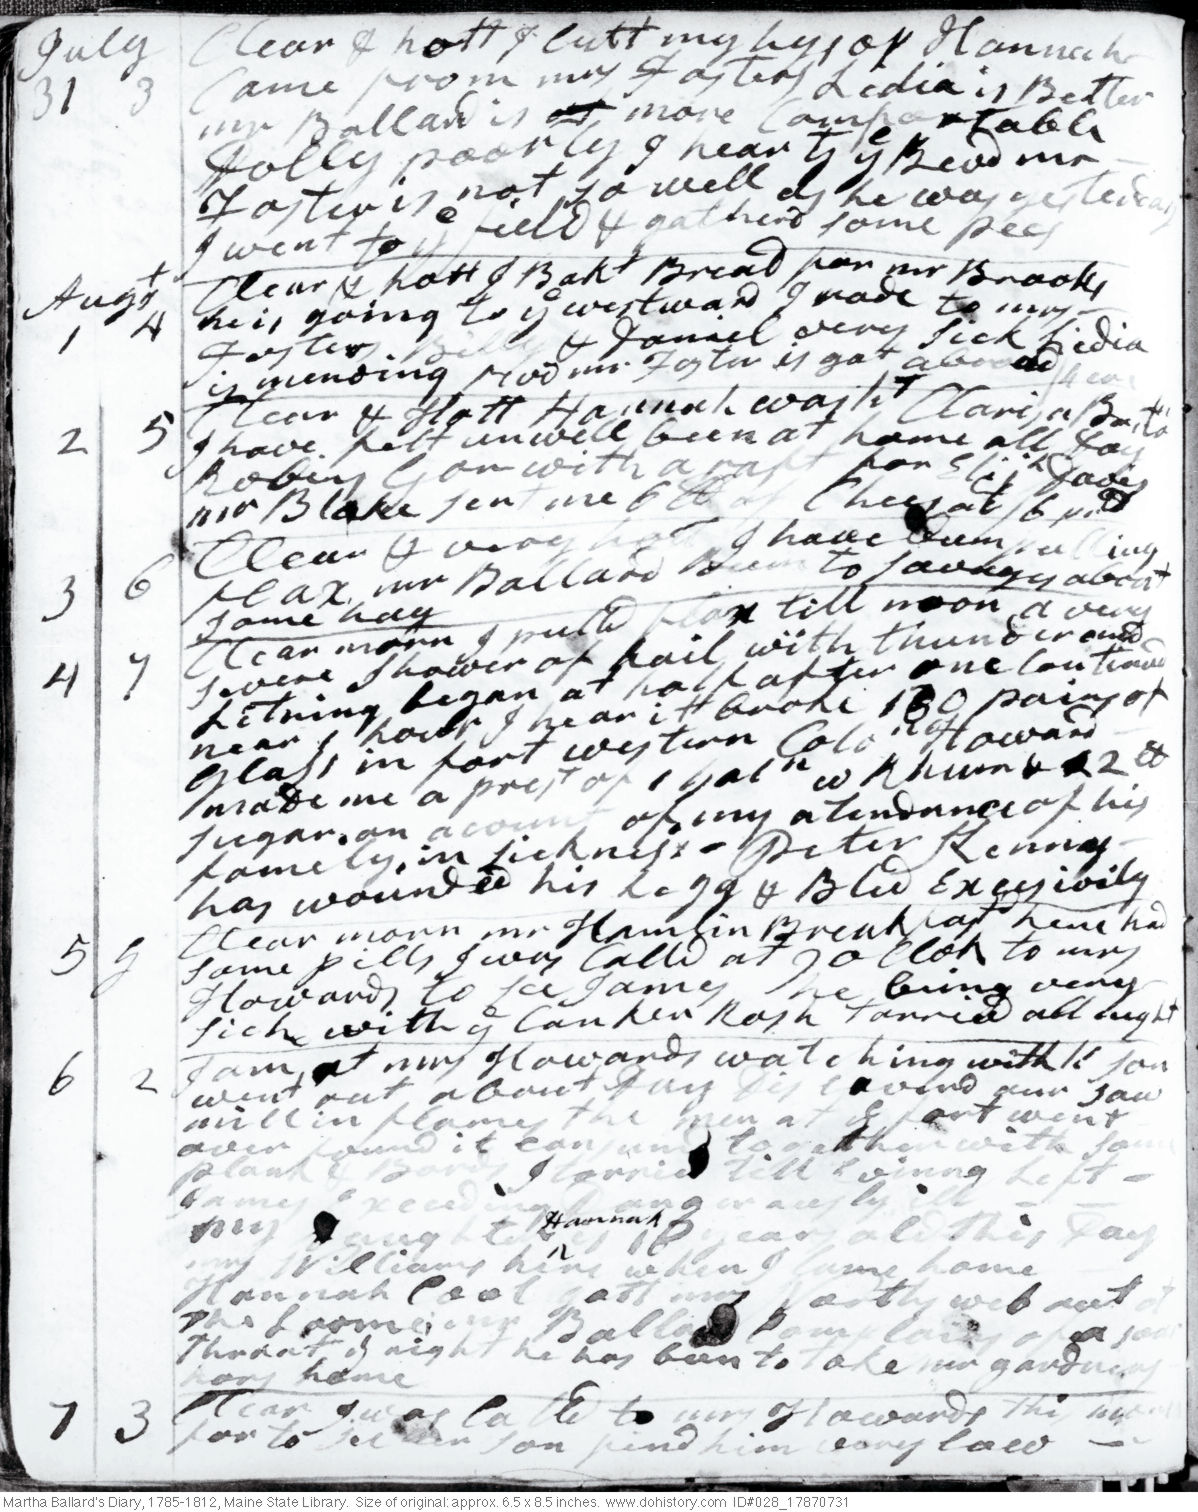 July Clear & hott I Cutt my hysop Hannah
31 3 Came from mrs Fosters Lidia is Better
mr Ballard is more Comfortable
Dolly poorly I hear ty ye Revd mr
Foster is not so well as he was yesterday
I went to ye field & gatherd some pees
Augst Clear & hott I Bakt Bread for mr Brooks
1 4 he is going to ye westward I rode to mrs
Fosters Billy & Daniel very sick Lidia
is mending revd mr Foster is got abroad here
2 5 Clear & Hott Hannah washt Clarisa
I have felt unwell been at home all Day
Robins Com with a raft for Davis
mr Blake sent me 6 lb of Chees at /6 pr lb
3 6 Clear & very hott I have Been pulling
flax mr Ballard Been to Savages about
some hay
4 7 Clear morn I pulld flax till noon a very
severe Shower of hail with thunder and
Litning began at half after one Continud
near 1 hour I hear it broke 130 pains of
glass in fort western Colonel Howard
made me a prest of 1 galn w Rhum & 2 lb
sugar on acount of my atendance of his
family in sickness - Peter Kenny
has wounded his Legg & Bled Excesivily
5 g Clear morn mr Hamlin Breakfast here had
some pills I was Calld at 7 oClok to mrs
Howards to see James he being very
sick with ye Canker Rash Tarried all night
6 2 I am at mrs Howards watching with her son
went out about Day Discoverd our saw
mill in flames the men at ye fort went
over found it consumd together with some
plank & Bords I tarried till Evinng Left
James Exceeding Dangerously ill
my Daughter Hannah is 18 years old this Day
mrs Williams here when I Came home
Hannah Cool gott mrs Norths web out at
the Loome mr Ballard Complains of a soar
throat & night he has been to take mr gardners
hors home
7 3 Clear I was Calld to mrs Howards this morn
for to see her son find him very low
Martha Ballard's Diary, 1785-1812, Maine State Library. Size of original: approx. 6.5 x 8.5 inches. www.dohistory.com ID#028_17870731